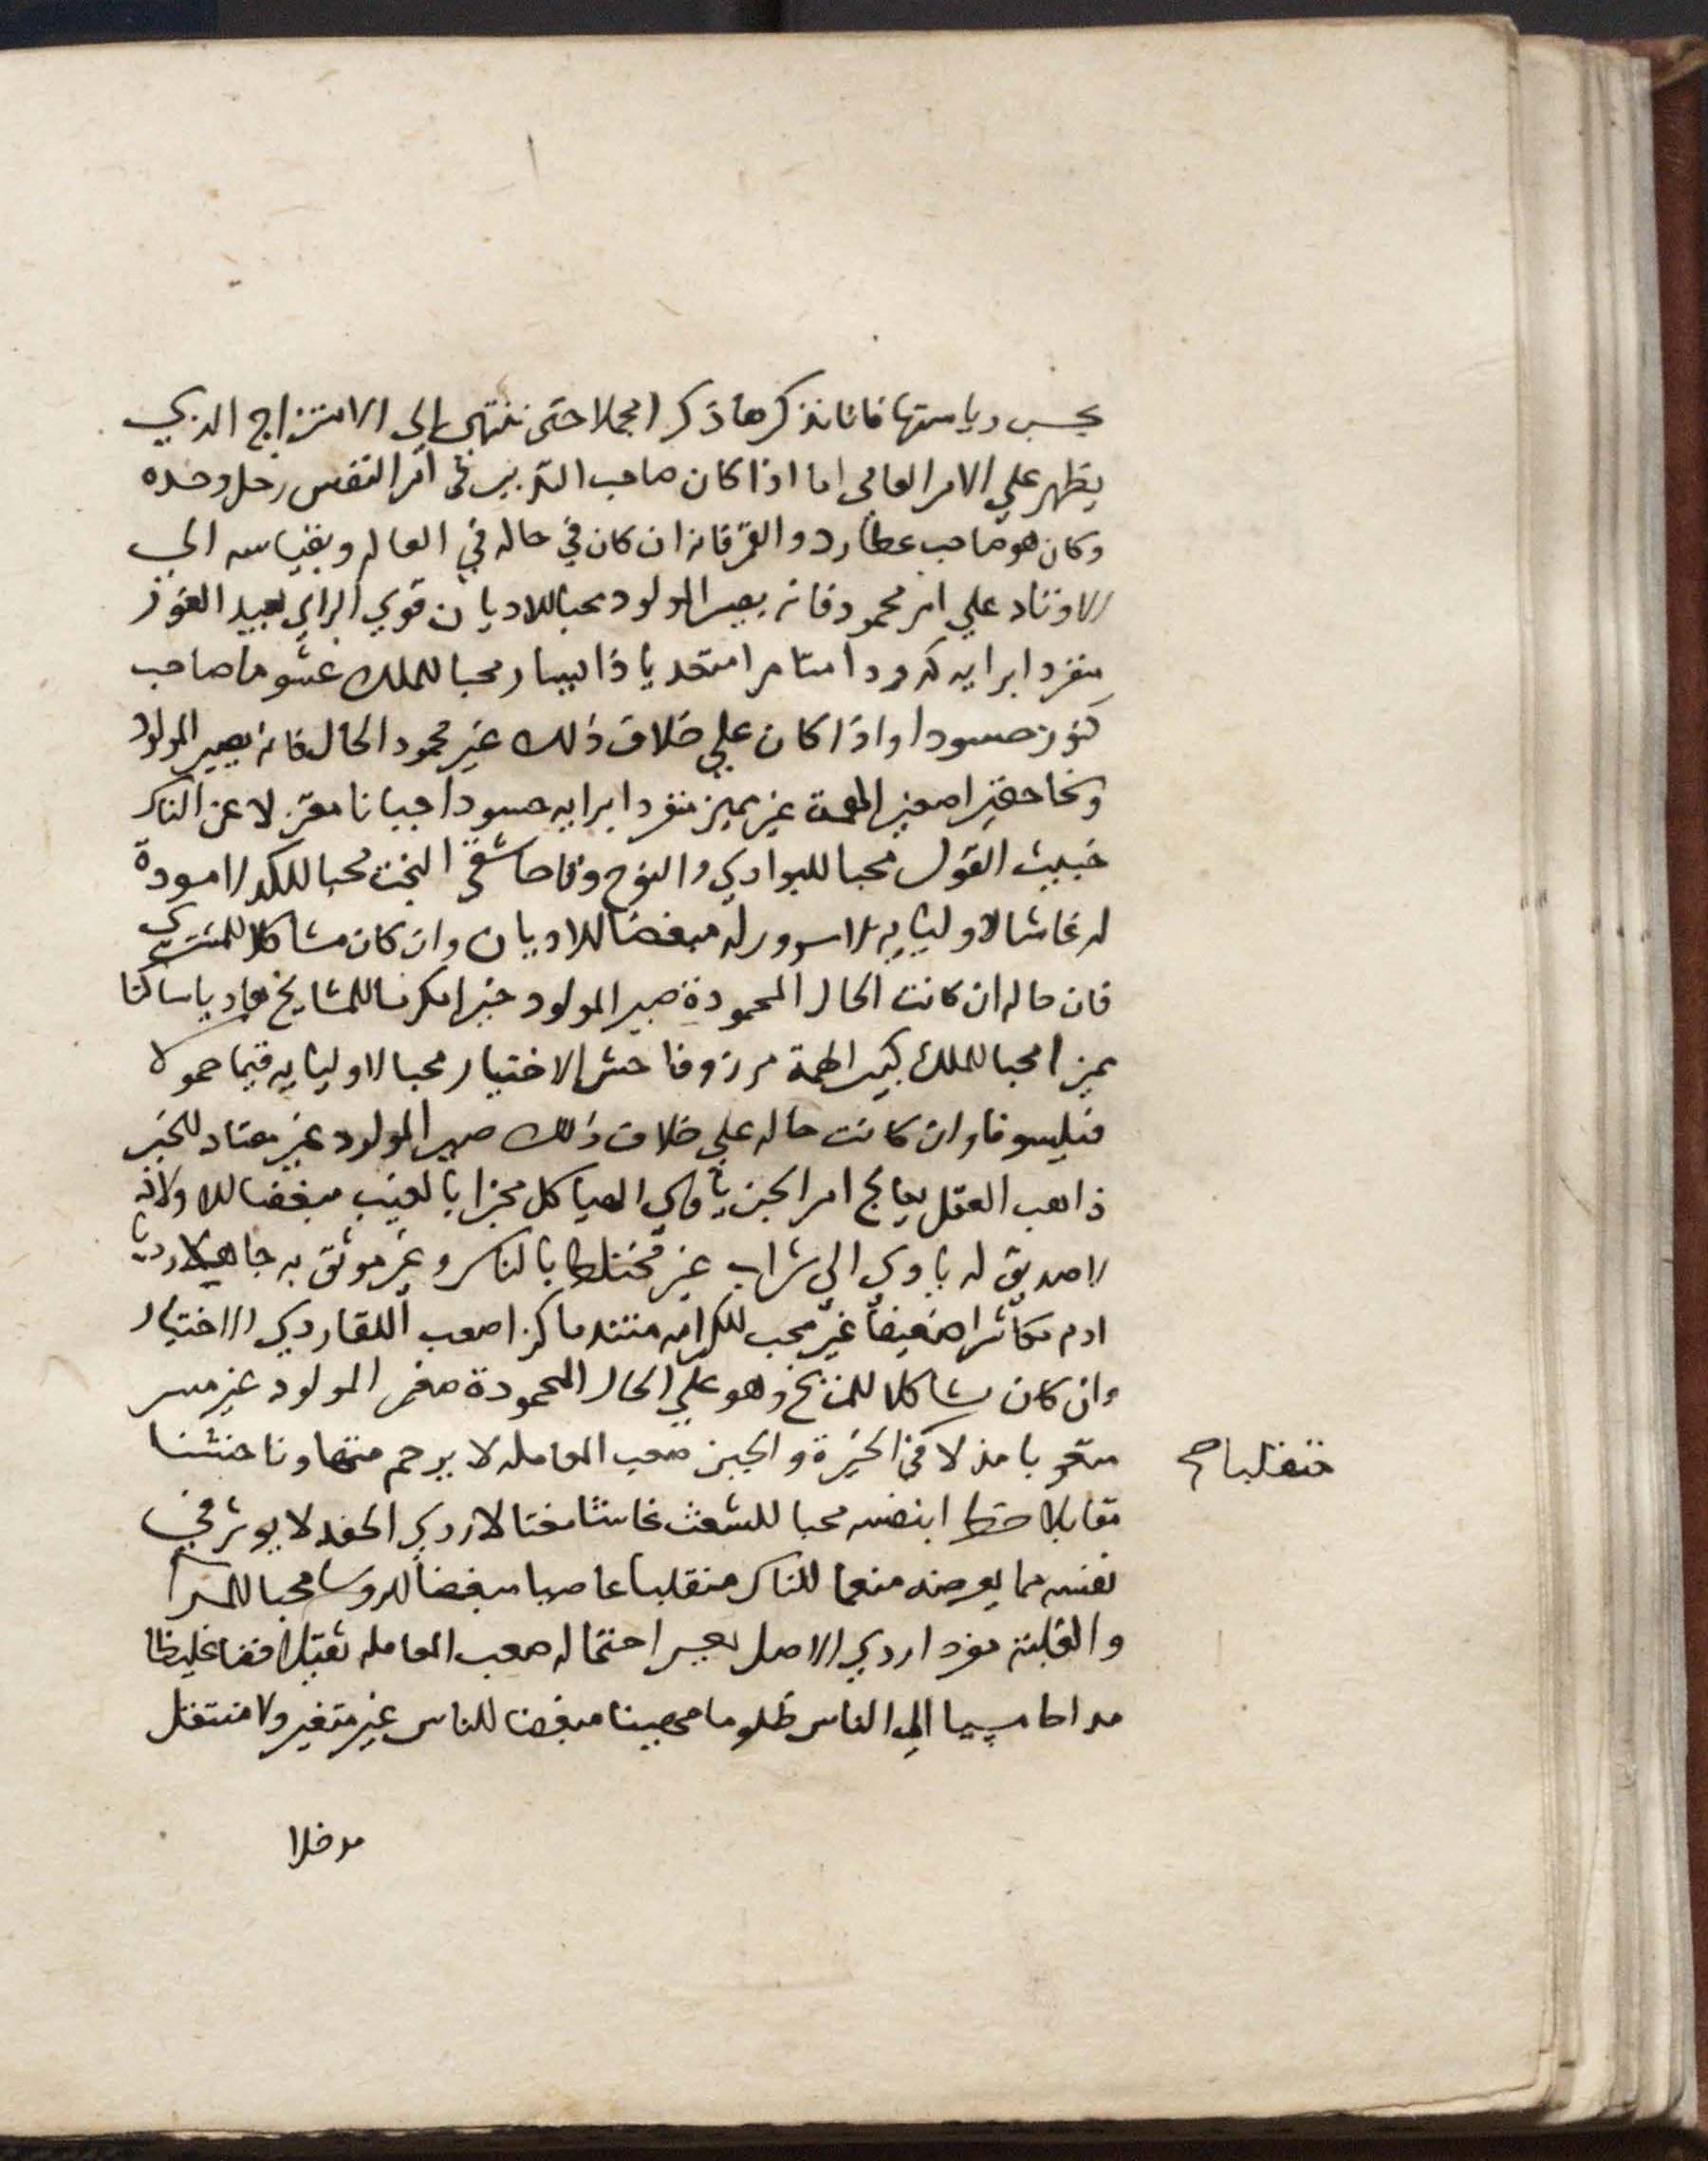 بحسب رياستها فانا نذكرها ذكرا مجملا حتى ننتهي الى الامتزاج الذي
يظهر علي الامر العامي اما اذا كان صاحب التدبير في امر النفس زحل وحده
وكان هو صاحب عطارد والقمر فانه ان كان في حاله في العالم وبقياسه الي
الاوتاد علي امر محمود فانه يصير المولود محبا للاديان قوي الراي بعيد الغور
منفردا برايه كدودا متامرا متعديا ذا يسار محبا للملك غشوما صاحب
كنوز حسودا واذا كان علي خلاف ذلك غير محمود الحال فانه يصير المولود
وسخا حقيرا صغير الهمة غير مميز منفردا برايه حسودا جبانا معتزلا عن الناس
خبيث القول محبا للبوادي والنوح وقاحا شقي البخت محبا للكد لا مودة
له غاشا لاوليايه لا سرور له مبغضا للاديان وان كان مشاكلا للمشتري
فان حاله ان كانت الحال المحمودة صير المولود خيرا مكرما للمشايخ هاديا ساكنا
مميزا محبا للملك كبير الهمة مرزوقا حسن الاختيار محبا لاوليايه قيما حمولا
فيلسوفا وان كانت حاله علي خلاف ذلك صير المولود غير معتاد للخير
ذاهب العقل يعالج امر الجن ياوي الهياكل مخبرا بالغيب مبغضا للاولاد
لا صديق له ياوي الي شراب غير مختلط بالناس وغير موثق به جاهلا رديا
ادم مكاثرا ضعيفا غير محب للكرامه متندما كزا صعب اللقا ردي الاختيار
وان كان مشاكلا للمريخ وهو علي الحال المحمودة صير المولود غير ميسر
متعوبا مذلا في الخيرة والجبن صعب المعامله لا يرحم متهاونا خشنا
مقابلا حظ ابنفسه محبا للشغب غاشا مغتالا ردي الحقد لا يوثر في
نفسه مما يعرضه منعما للناس متقلبا عاصيا مبغضا للروسا محبا للشر
والغلبة مفردا ردي الاصل يعسر احتماله صعب المعامله ثقيلا فظا غليظا
مداطا مسيا الي الناس ظلوما مهيبنا مبغضا للناس غير متغير ولا منتقل
متقلبا صح
مدخلا